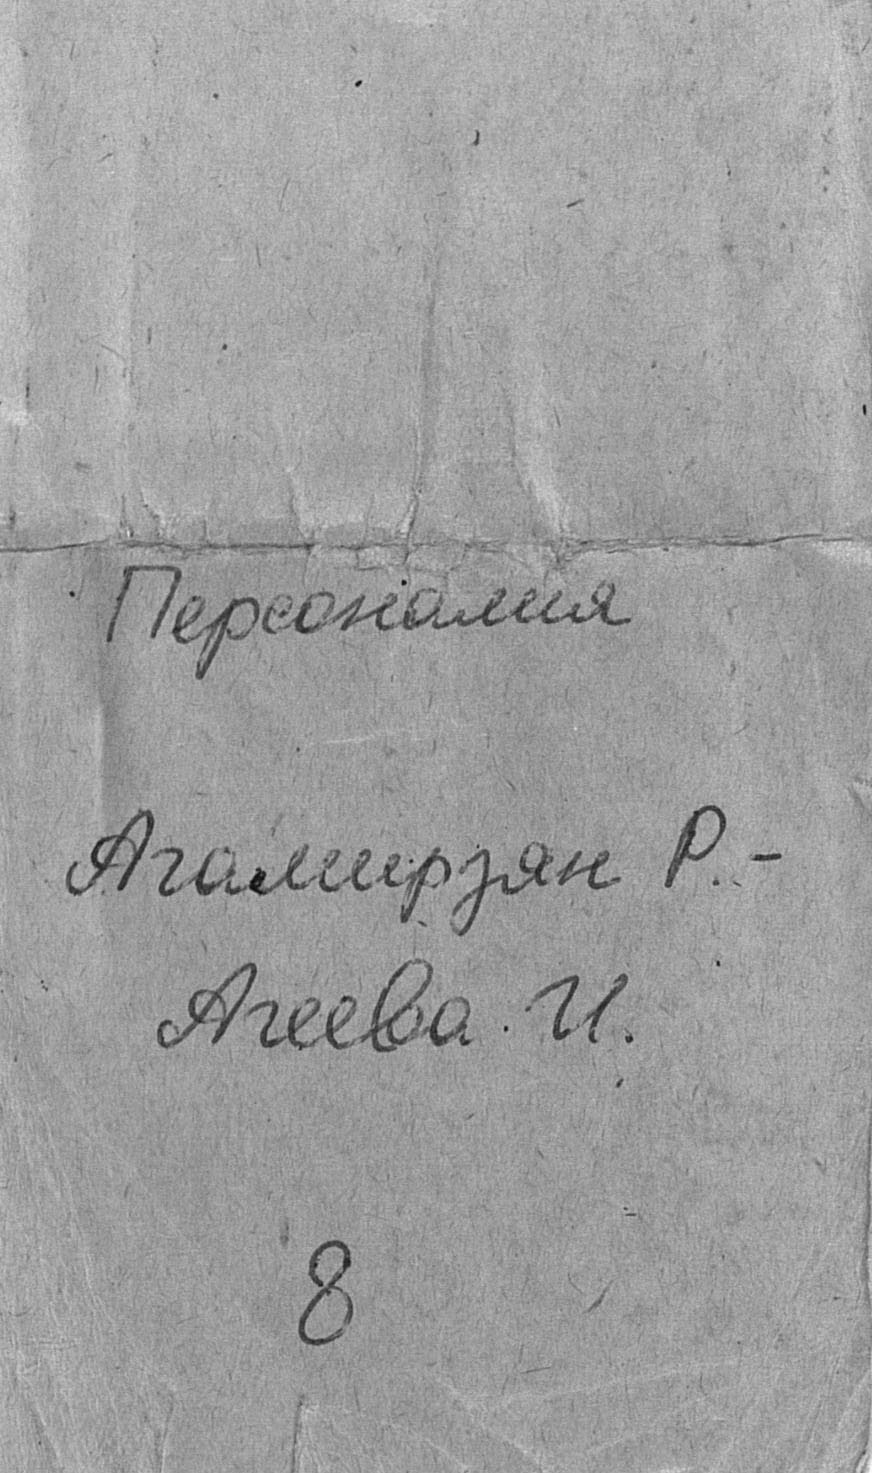 Персоналия
Агамирзян Р. -
Агеева И.
8